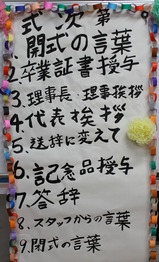 式次第
1.開式の言葉
2.卒業証書授与
3.理事長、理事挨拶
4.代表挨拶
5.送辞に変えて
6.記念品授与
7.答辞
8.スタッフからの言葉
9.閉式の言葉